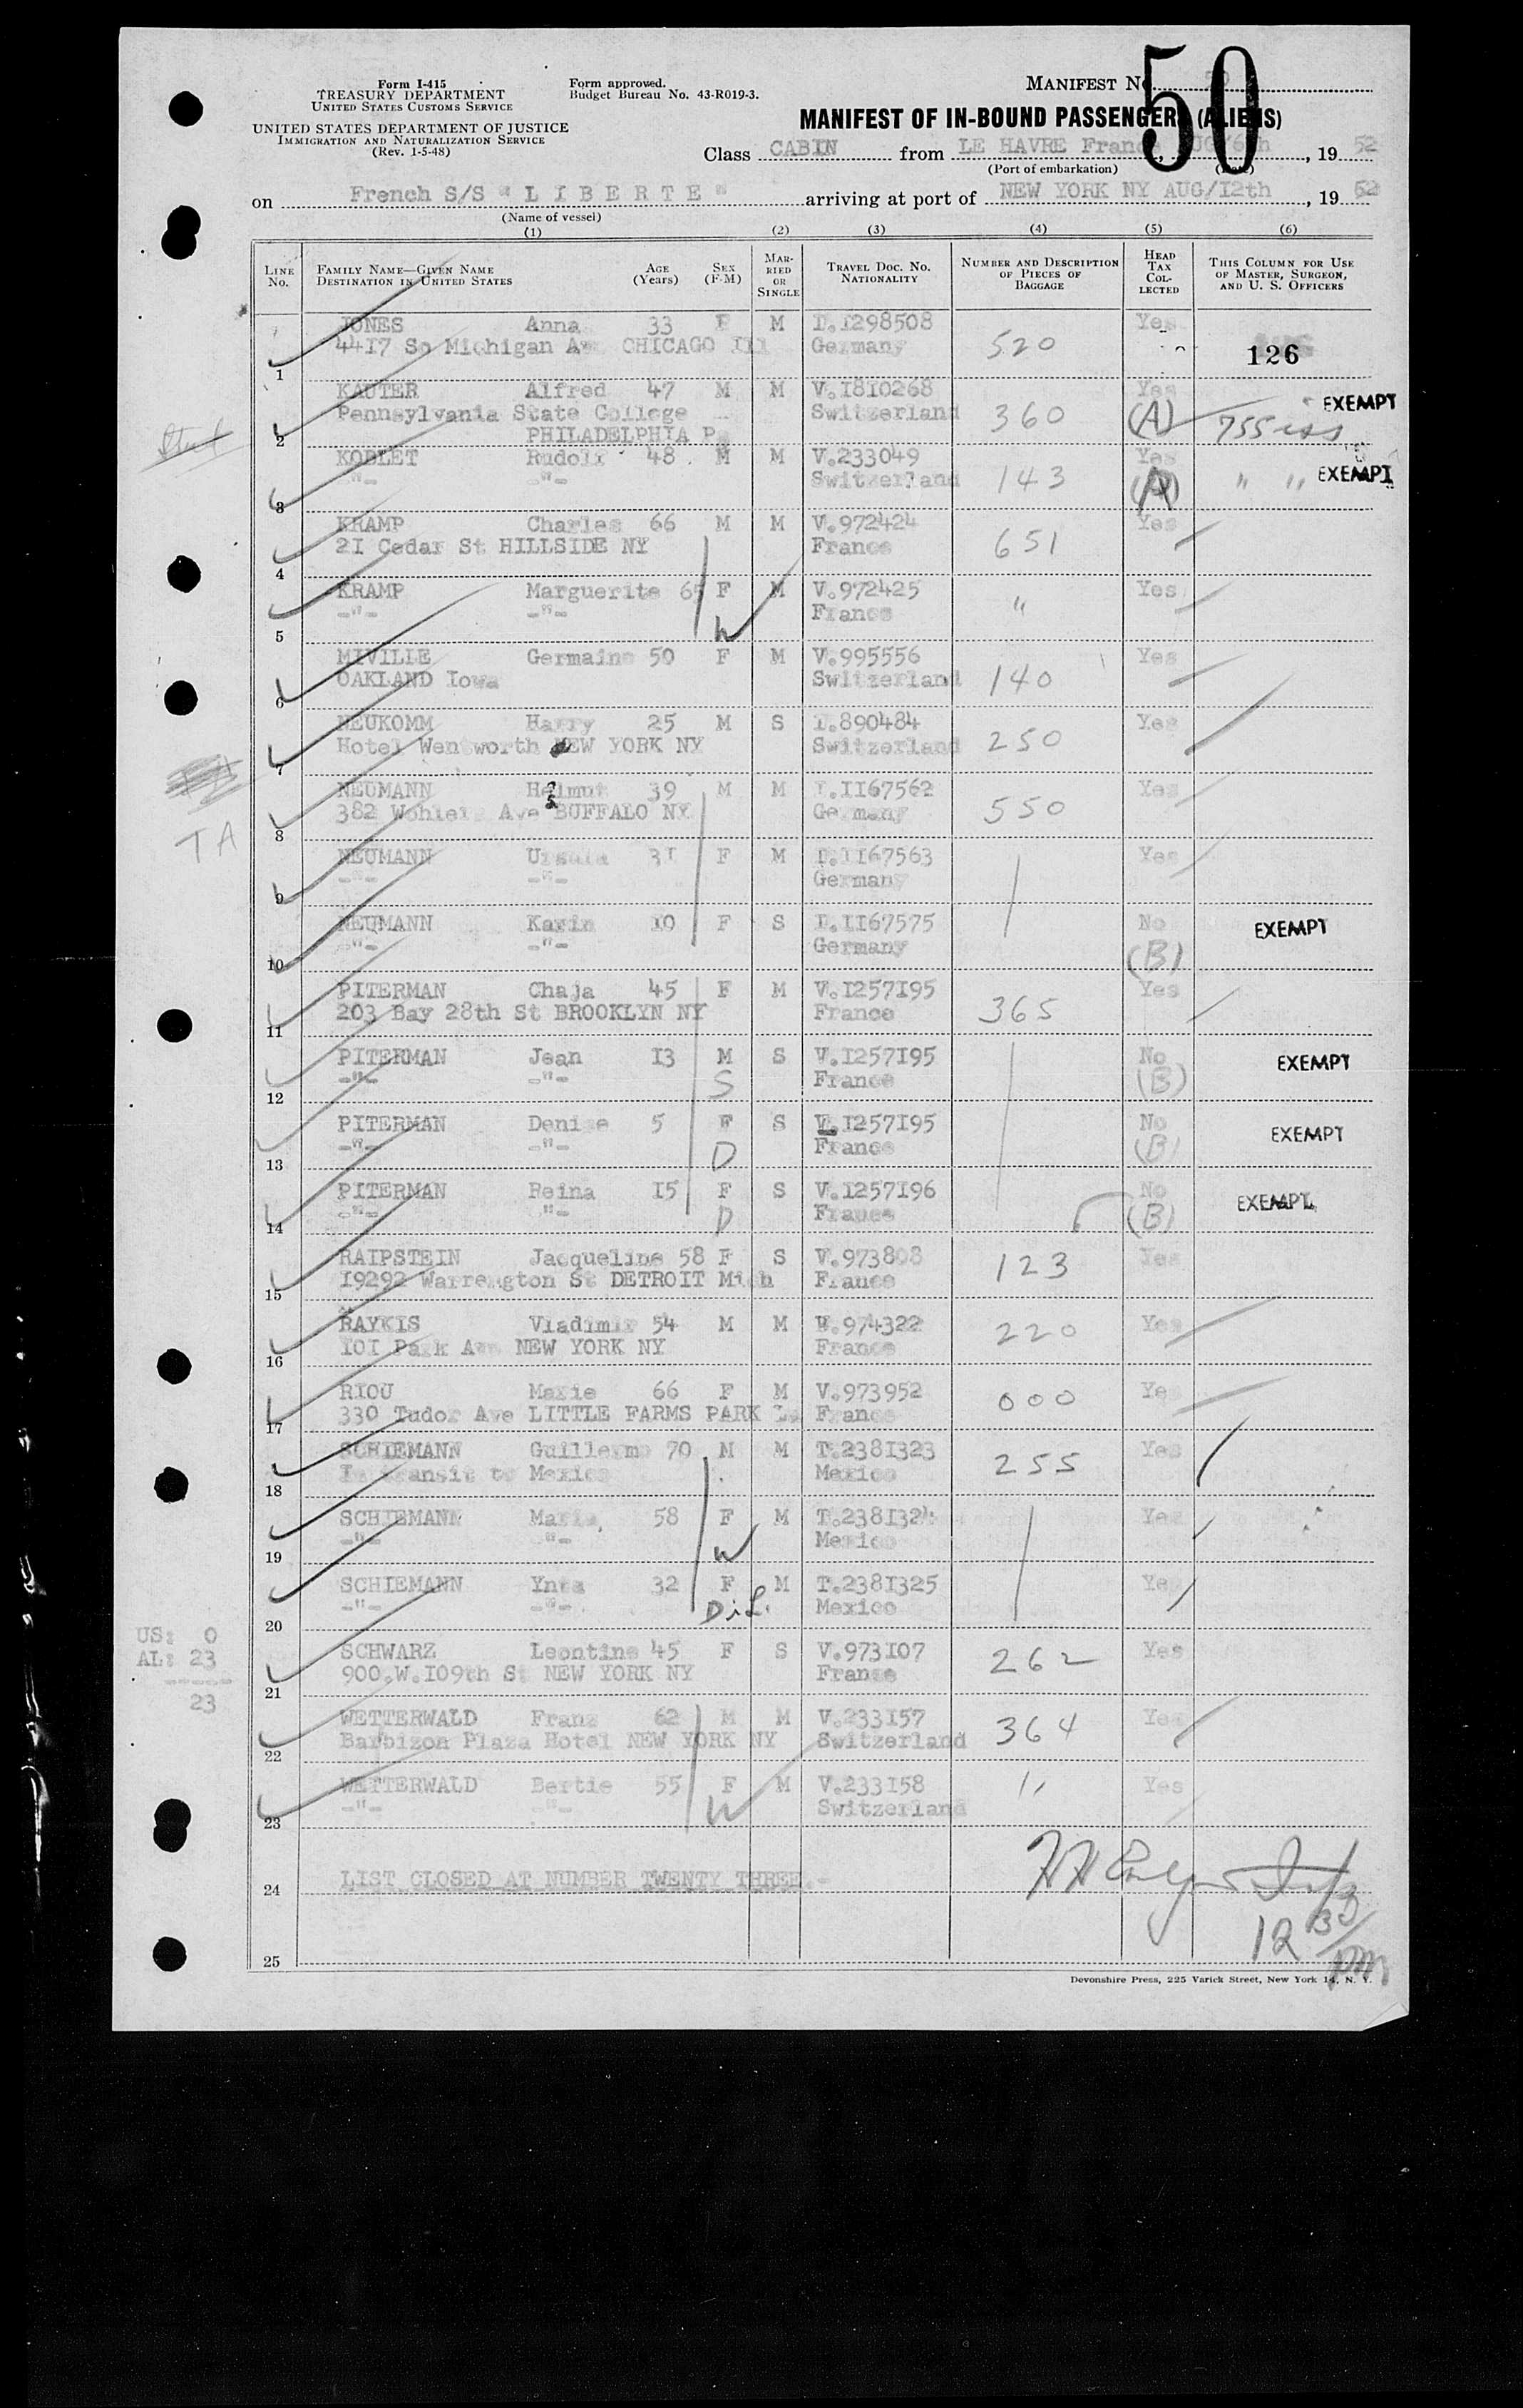 Form I-415
TREASURY DEPARTMENT
UNITED STATES CUSTOMS SERVICE
UNITED STATES DEPARTMENT OF JUSTICE
IMMIGRATION AND NATURALIZATION SERVICE
(Rev. 1-5-48)
Form approved.
Budget Bureau No. 43-R019-3.
MANIFEST No. 50
MANIFEST OF IN-BOUND PASSENGERS (ALIENS)
Class CABIN from LE HAVRE France, AUG/6th, 19 52
(Port of embarkation) (Date)
on French S/S " L I B E R T E " arriving at port of NEW YORK NY AUG/12th, 19 52
(Name of vessel)
(1) (2) (3) (4) (5) (6)
LINE No. FAMILY NAME—GIVEN NAME DESTINATION IN UNITED STATES AGE (Years) SEX (F-M) MARRIED OR SINGLE TRAVEL DOC. NO. NATIONALITY NUMBER AND DESCRIPTION OF PIECES OF BAGGAGE HEAD TAX COLLECTED THIS COLUMN FOR USE OF MASTER, SURGEON, AND U. S. OFFICERS
JONES Anna 33 F M I.1298508 Yes
4417 So Michigan Ave CHICAGO Ill Germany 520 126
1
KAUTER Alfred 47 M M V.1810268 Yes EXEMPT
Pennsylvania State College Switzerland 360 (A) 755
2 PHILADELPHIA Pa
KOBLET Rudolf 48 M M V.233049 Yes
-"- -"- Switzerland 143 (A) " " EXEMPT
3
KRAMP Charles 66 M M V.972424 Yes
21 Cedar St HILLSIDE NY France 651
4
KRAMP Marguerite 65 F M V.972425 Yes
-"- -"- France "
5 W
MIVILLE Germaine 50 F M V.995556 Yes
OAKLAND Iowa Switzerland 140
6
NEUKOMM Harry 25 M S I.890484 Yes
Hotel Wentworth NEW YORK NY Switzerland 250
7
NEUMANN Helmut 39 M M I.1167562 Yes
382 Wohlers Ave BUFFALO NY Germany 550
TA 8
NEUMANN Ursula 31 F M I.1167563 Yes
-"- -"- Germany
9
NEUMANN Karin 10 F S I.1167575 No EXEMPT
-"- -"- Germany (B)
10
PITERMAN Chaja 45 F M V.1257195 Yes
203 Bay 28th St BROOKLYN NY France 365
11
PITERMAN Jean 13 M S V.1257195 No EXEMPT
-"- -"- S France (B)
12
PITERMAN Denise 5 F S V.1257195 No EXEMPT
-"- -"- D France (B)
13
PITERMAN Reina 15 F S V.1257196 No EXEMPT
-"- -"- D France (B)
14
RAIPSTEIN Jacqueline 58 F S V.973808 123 Yes
19292 Warrengton St DETROIT Mich France
15
RAYKIS Vladimir 54 M M V.974322 220 Yes
101 Park Ave NEW YORK NY France
16
RIOU Marie 66 F M V.973952 000 Yes
330 Tudor Ave LITTLE FARMS PARK La France
17
SCHIEMANN Guillermo 70 M M T.2381323 255 Yes
In transit to Mexico Mexico
18
SCHIEMANN Maria 58 F M T.2381324 Yes
-"- -"- W Mexico
19
SCHIEMANN Ynta 32 F M T.2381325 Yes
-"- -"- D.i.L. Mexico
20
US: 0
AL: 23
23
SCHWARZ Leontine 45 F S V.973107 262 Yes
900.W.109th St NEW YORK NY France
21
WETTERWALD Franz 62 M M V.233157 364 Yes
Barbizon Plaza Hotel NEW YORK NY Switzerland
22
WETTERWALD Bertie 55 F M V.233158 " Yes
-"- -"- W Switzerland
23
24 LIST CLOSED AT NUMBER TWENTY THREE.-
12 30 / pm
25
Devonshire Press, 225 Varick Street, New York 14, N. Y.